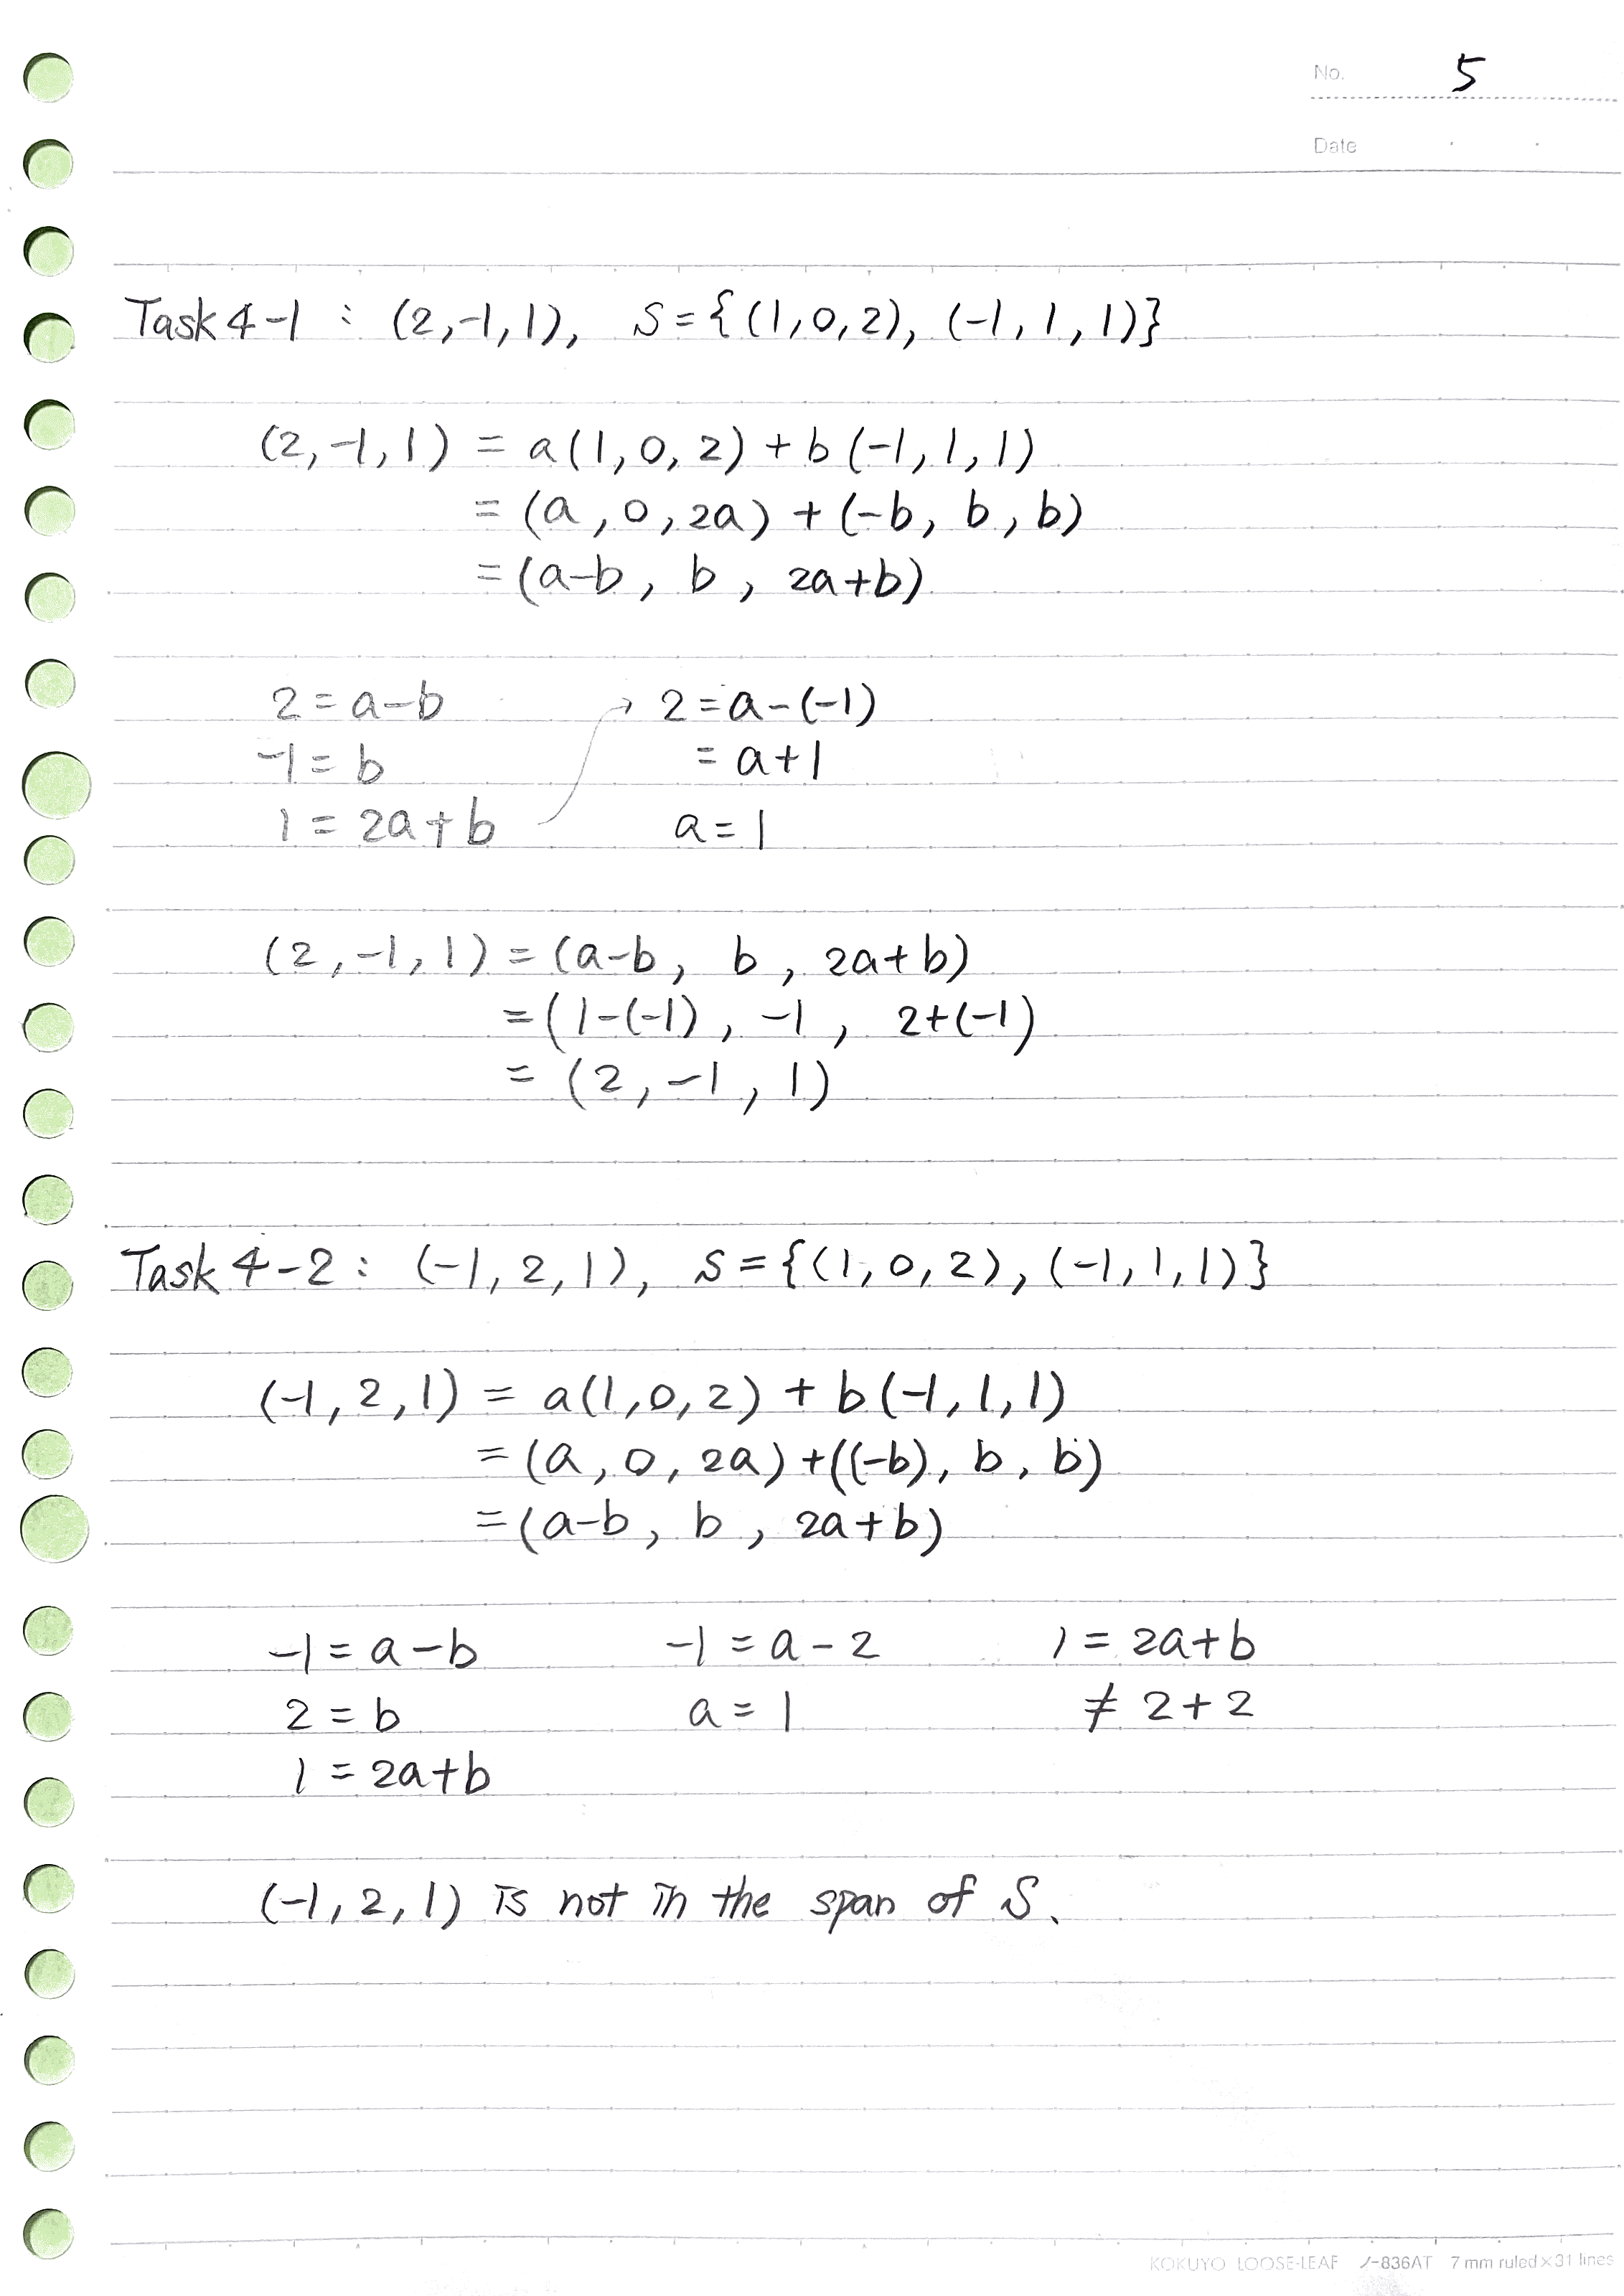 No. 5
Date
Task 4-1 : (2,-1,1), S={(1,0,2), (-1,1,1)}
(2,-1,1) = a(1,0,2) + b(-1,1,1)
= (a,0,2a) + (-b, b, b)
= (a-b, b, 2a+b)
2 = a-b → 2 = a-(-1)
-1 = b = a+1
1 = 2a+b a = 1
(2,-1,1) = (a-b, b, 2a+b)
= (1-(-1), -1, 2+(-1)
= (2,-1,1)
Task 4-2 : (-1,2,1), S={(1,0,2), (-1,1,1)}
(-1,2,1) = a(1,0,2) + b(-1,1,1)
= (a,0,2a) + ((-b), b, b)
= (a-b, b, 2a+b)
-1 = a-b -1 = a-2 1 = 2a+b
2 = b a = 1 ≠ 2+2
1 = 2a+b
(-1,2,1) is not in the span of S.
KOKUYO LOOSE-LEAF ノ-836AT 7 mm ruled×31 lines